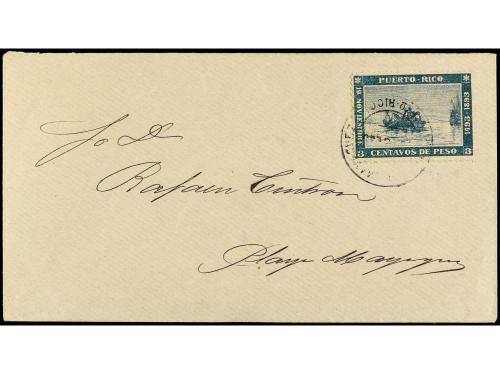 PUERTO-RICO
19 NOVIEMBRE
1493-1893
3 CENTAVOS DE PESO 3
So D.
Rafael Cintron
Playa Mayaguez